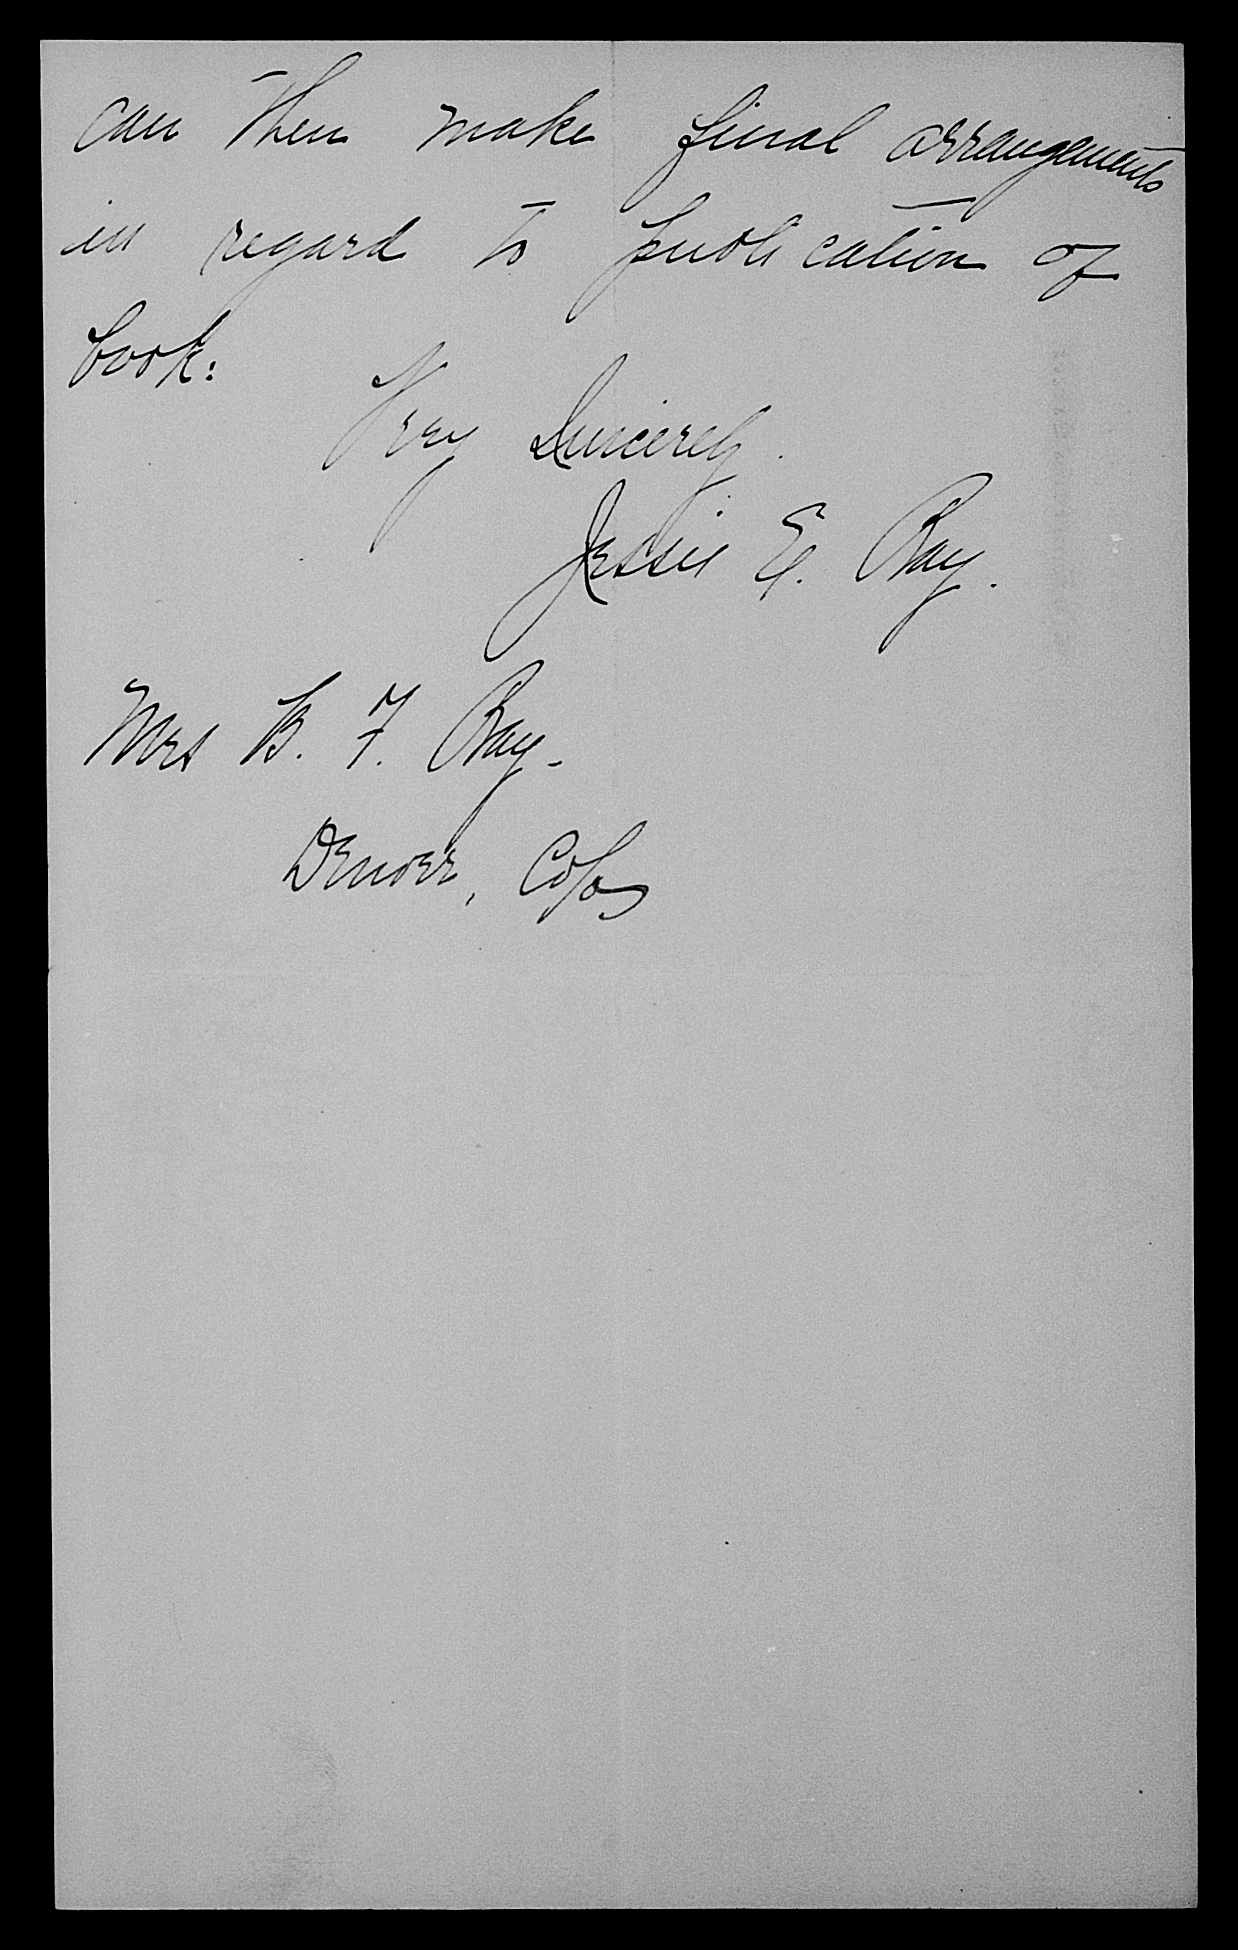 can then make final arrangements
in regard to publication of
book:
Very Sincerely.
Jessie E. Ray.
Mrs B. F. Ray.
Denver, Colo